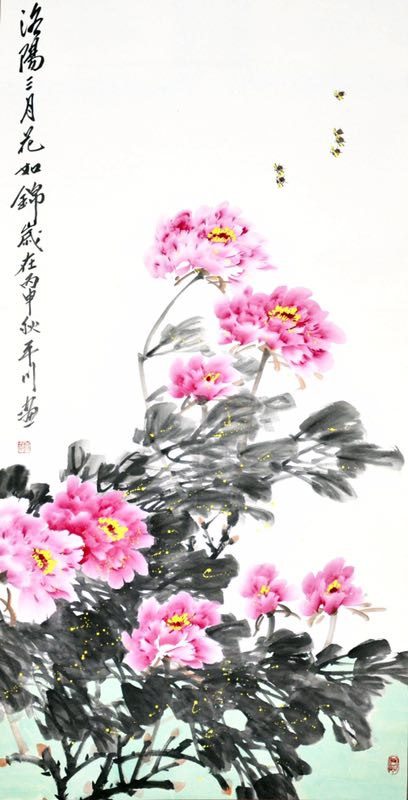 洛陽三月花如錦歲在丙申秋平川畫